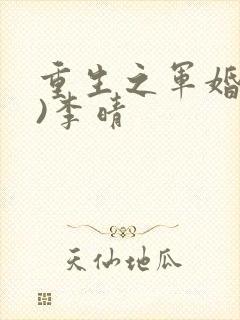 重生之军婚
)李晴
天仙地瓜